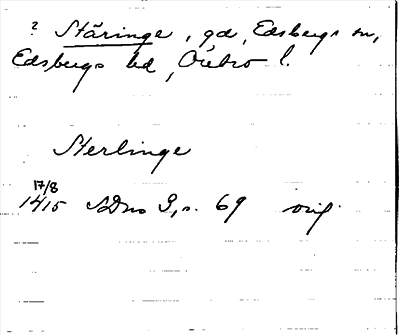 ? Stäringe, gd, Edsbergs sn,
Edsbergs hd, Örebro l.
Sterlinge
17/8
1415 SDns 3, s. 69 orig.